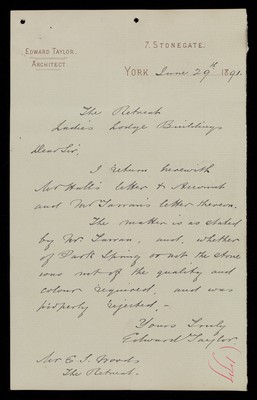 EDWARD TAYLOR.
ARCHITECT.
7. STONEGATE.
YORK June 29th 1891.
The Retreat
Ladies Lodge Buildings
Dear Sir,
I return herewith
Mr Hall's letter & Account
and Mr Farran's letter thereon.
The matter is as stated
by Mr. Farran. and, whether
of Park Spring or not, the stone
was not of the quality and
colour required, and was
properly rejected. -
Yours truly
Edward Taylor
Mr C. S. Woods
The Retreat.